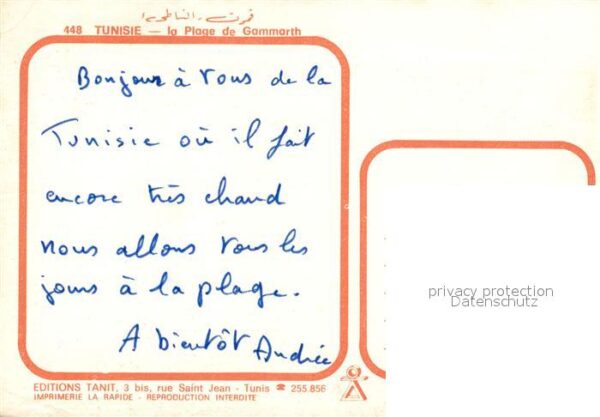 قمرت (الشاطئ)
448 TUNISIE — la Plage de Gammarth
Bonjour à vous de la
Tunisie où il fait
encore très chaud
nous allons tous les
jours à la plage.
A bientôt Andrée
privacy protection
Datenschutz
EDITIONS TANIT, 3 bis, rue Saint Jean - Tunis ☎ 255.856
IMPRIMERIE LA RAPIDE - REPRODUCTION INTERDITE